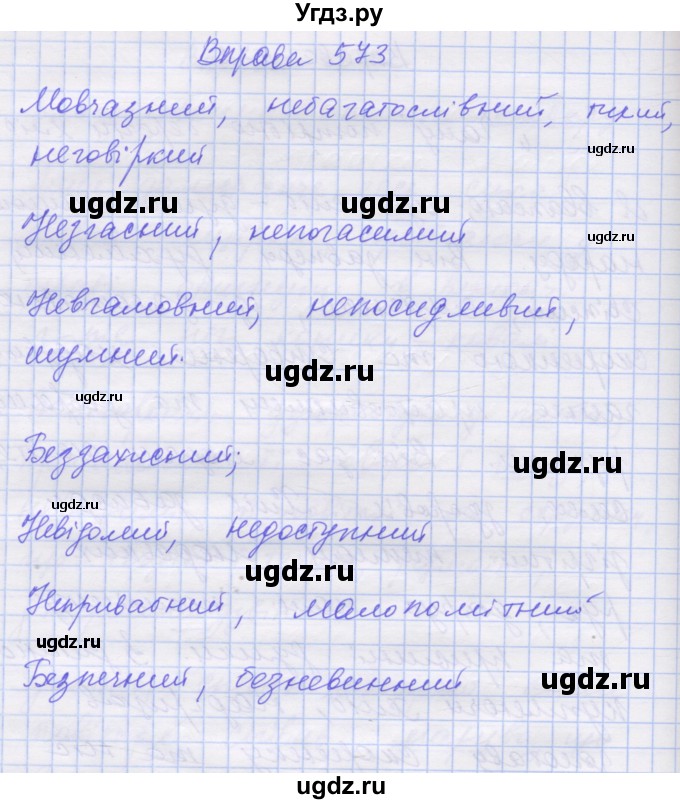 Угдз.ру
Вправа 573
Мовчазний, небагатослівний, тихий,
ugdz.ru
неговіркий
ugdz.ru ugdz.ru
Незгасний, непогасимий ugdz.ru
Невгамовний, непосидливий,
шумний.
ugdz.ru
ugdz.ru
Беззахисний;
ugdz.ru
ugdz.ru
Невідомий, недоступний
ugdz.ru
Непривабний, малопомітний
ugdz.ru
Безпечний, безневинний ugdz.ru
ugdz.ru